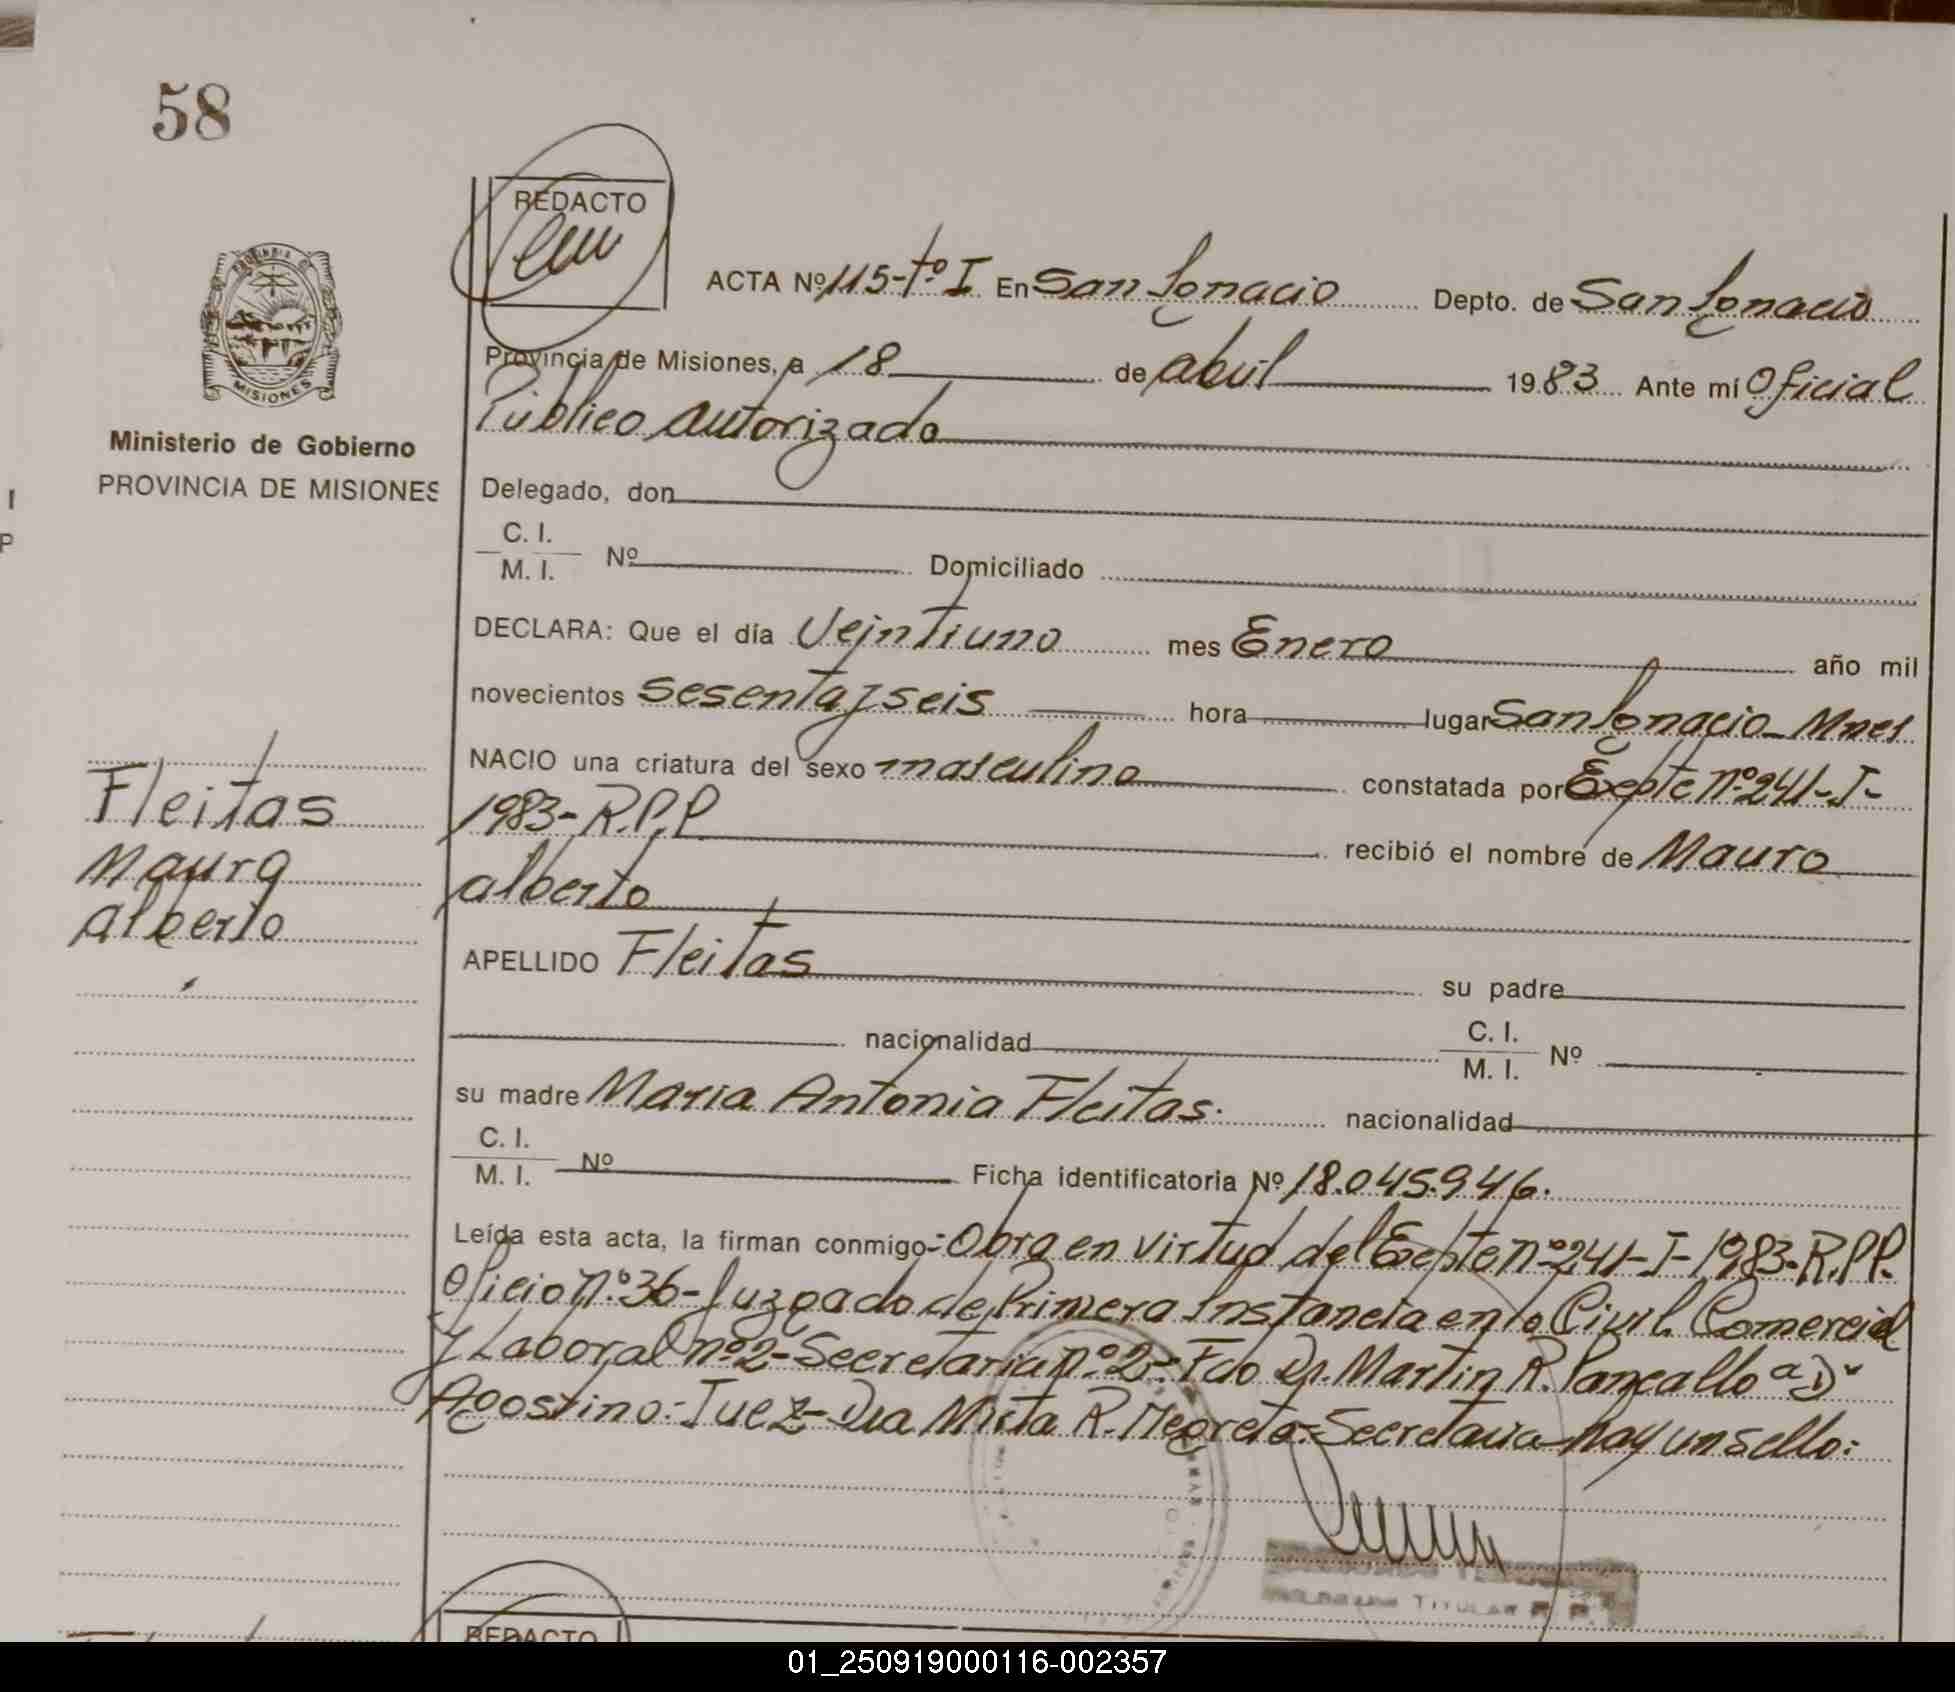 58
REDACTO
ACTA Nº 115-tº I En San Ignacio Depto. de San Ignacio
Provincia de Misiones, a 18 de abril 1983 Ante mí Oficial
Público autorizado
PROVINCIA DE
MISIONES
Ministerio de Gobierno
PROVINCIA DE MISIONES
Delegado, don
C. I.
M. I. Nº Domiciliado
DECLARA: Que el día Veintiuno mes Enero año mil
novecientos sesentayseis hora lugar San Ignacio-Mnes
NACIO una criatura del sexo masculino constatada por Expte nº 241-I-
1983-R.P.P recibió el nombre de Mauro
alberto
Fleitas
Mauro
alberto
APELLIDO Fleitas su padre
nacionalidad C. I.
M. I. Nº
su madre Maria Antonia Fleitas. nacionalidad
C. I.
M. I. Nº Ficha identificatoria Nº 18.045.946.
Leída esta acta, la firman conmigo:-Obra en virtud del Expte nº 241-I-1983-R.P.P.
Oficio nº 36-Juzgado de Primera Instancia en lo Civil Comercial
y Laboral nº 2-Secretaria nº 2-Fdo Dr. Martin R.
Agostino:-Juez-Dra Mirta R. Negreta-Secretaria-hay un sello:
REDACTO
01_250919000116-002357